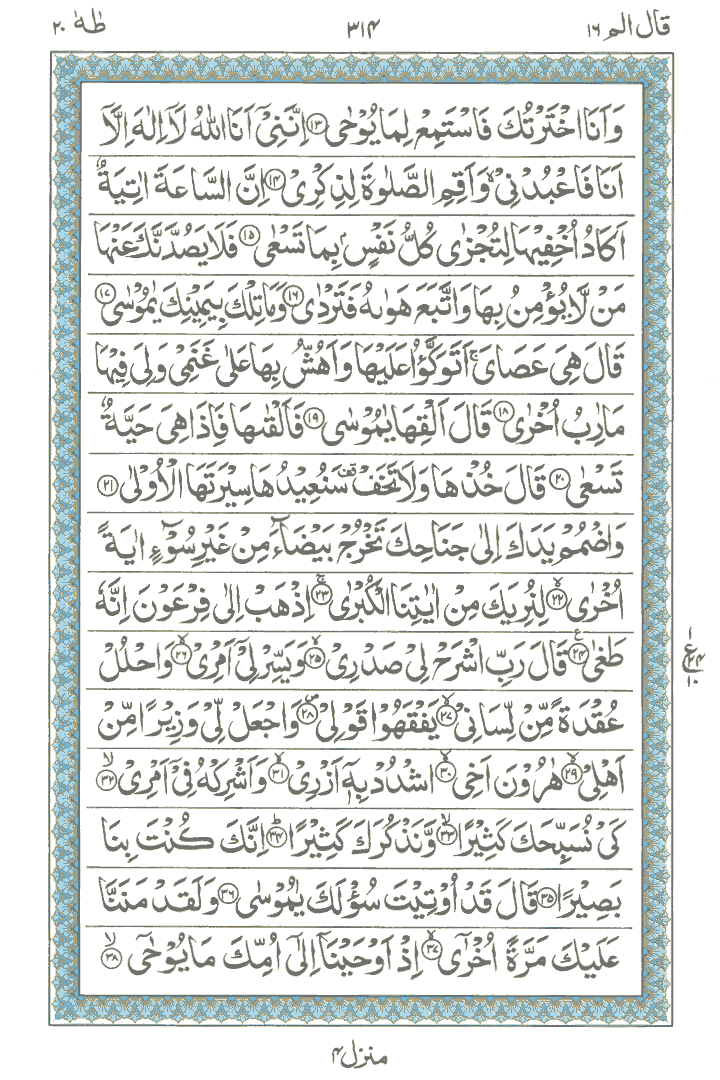 قال الم ١٦ ٣١٤ طٰهٰ ٢٠
وَاَنَا اخْتَرْتُكَ فَاسْتَمِعْ لِمَا يُوْحٰى ﴿١٣﴾ اِنَّنِیْۤ اَنَا اللّٰهُ لَاۤ اِلٰهَ اِلَّاۤ
اَنَا فَاعْبُدْنِیْ ۙ وَاَقِمِ الصَّلٰوةَ لِذِكْرِیْ ﴿١٤﴾ اِنَّ السَّاعَةَ اٰتِیَةٌ
اَكَادُ اُخْفِیْهَا لِتُجْزٰى كُلُّ نَفْسٍۭ بِمَا تَسْعٰى ﴿١٥﴾ فَلَا یَصُدَّنَّكَ عَنْهَا
مَنْ لَّا یُؤْمِنُ بِهَا وَاتَّبَعَ هَوٰىهُ فَتَرْدٰى ﴿١٦﴾ وَمَا تِلْكَ بِیَمِیْنِكَ یٰمُوْسٰى ﴿١٧﴾
قَالَ هِیَ عَصَایَ ۚ اَتَوَكَّؤُا عَلَیْهَا وَاَهُشُّ بِهَا عَلٰى غَنَمِیْ وَلِیَ فِیْهَا
مَاٰرِبُ اُخْرٰى ﴿١٨﴾ قَالَ اَلْقِهَا یٰمُوْسٰى ﴿١٩﴾ فَاَلْقٰىهَا فَاِذَا هِیَ حَیَّةٌ
تَسْعٰى ﴿٢٠﴾ قَالَ خُذْهَا وَلَا تَخَفْ ۥ قف سَنُعِیْدُهَا سِیْرَتَهَا الْاُوْلٰى ﴿٢١﴾
وَاضْمُمْ یَدَكَ اِلٰى جَنَاحِكَ تَخْرُجْ بَیْضَآءَ مِنْ غَیْرِ سُوْٓءٍ اٰیَةً
اُخْرٰى ﴿٢٢﴾ۙ لِنُرِیَكَ مِنْ اٰیٰتِنَا الْكُبْرٰى ﴿٢٣﴾ۚ اِذْهَبْ اِلٰى فِرْعَوْنَ اِنَّهٗ
طَغٰى ﴿٢٤﴾ ع قَالَ رَبِّ اشْرَحْ لِیْ صَدْرِیْ ﴿٢٥﴾ۙ وَیَسِّرْ لِیْۤ اَمْرِیْ ﴿٢٦﴾ۙ وَاحْلُلْ
عُقْدَةً مِّنْ لِّسَانِیْ ﴿٢٧﴾ۙ یَفْقَهُوْا قَوْلِیْ ﴿٢٨﴾۪ وَاجْعَلْ لِّیْ وَزِیْرًا مِّنْ
اَهْلِیْ ﴿٢٩﴾ۙ هٰرُوْنَ اَخِی ﴿٣٠﴾ۙ اشْدُدْ بِهٖۤ اَزْرِیْ ﴿٣١﴾ۙ وَاَشْرِكْهُ فِیْۤ اَمْرِیْ ﴿٣٢﴾ۙ
كَیْ نُسَبِّحَكَ كَثِیْرًا ﴿٣٣﴾ۙ وَّنَذْكُرَكَ كَثِیْرًا ﴿٣٤﴾ؕ اِنَّكَ كُنْتَ بِنَا
بَصِیْرًا ﴿٣٥﴾ قَالَ قَدْ اُوْتِیْتَ سُؤْلَكَ یٰمُوْسٰى ﴿٣٦﴾ وَلَقَدْ مَنَنَّا
عَلَیْكَ مَرَّةً اُخْرٰۤى ﴿٣٧﴾ۙ اِذْ اَوْحَیْنَاۤ اِلٰۤى اُمِّكَ مَا یُوْحٰۤى ﴿٣٨﴾ۙ
١
ع ٢٤
١٠
منزل ٤